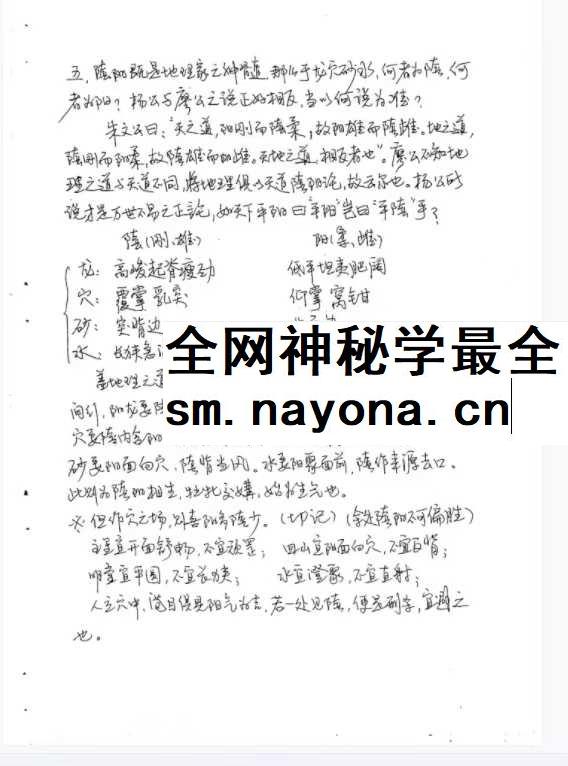 五、阴阳既是地理家之神髓，那么于龙穴砂水，何者为阴、何
者为阳？杨公与廖公之说正好相反，当以何说为准？
朱文公曰："天之道，阳刚而阴柔，故阳雄而阴雌。地之道，
阴刚而阳柔，故阴雄而阳雌。天地之道，相反者也"。廖公不知地
理之道与天道不同，将地理俱以天道阴阳论，故云尔也。杨公所
说才是万世不易之正论，如天下平阳曰"平阳"岂曰"平阴"乎？
阴（刚、雄） 阳（柔、雌）
龙：高峻起脊瘦劲 低平坦夷肥阔
穴：覆掌 乳突 仰掌 窝钳
砂：突背边
水：长狭急
盖地理之道
穴要阴内含阳
砂要阳面向穴，阴背当风。水要阳聚面前，阴作来源去口。
此则为阴阳相生，牝牡交媾，始有生气也。
※但作穴之场，则喜阳多阴少。（切记）（余是阴阳不可偏胜）
主星宜开面舒畅，不宜顽置； 四山宜阳面向穴，不宜反背；
明堂宜平圆，不宜 狭； 水宜澄聚，不宜直射；
人立穴中，满目俱是阳气为吉，若一处见阴，便是刑李，宜避之
也。
全网神秘学最全
sm.nayona.cn